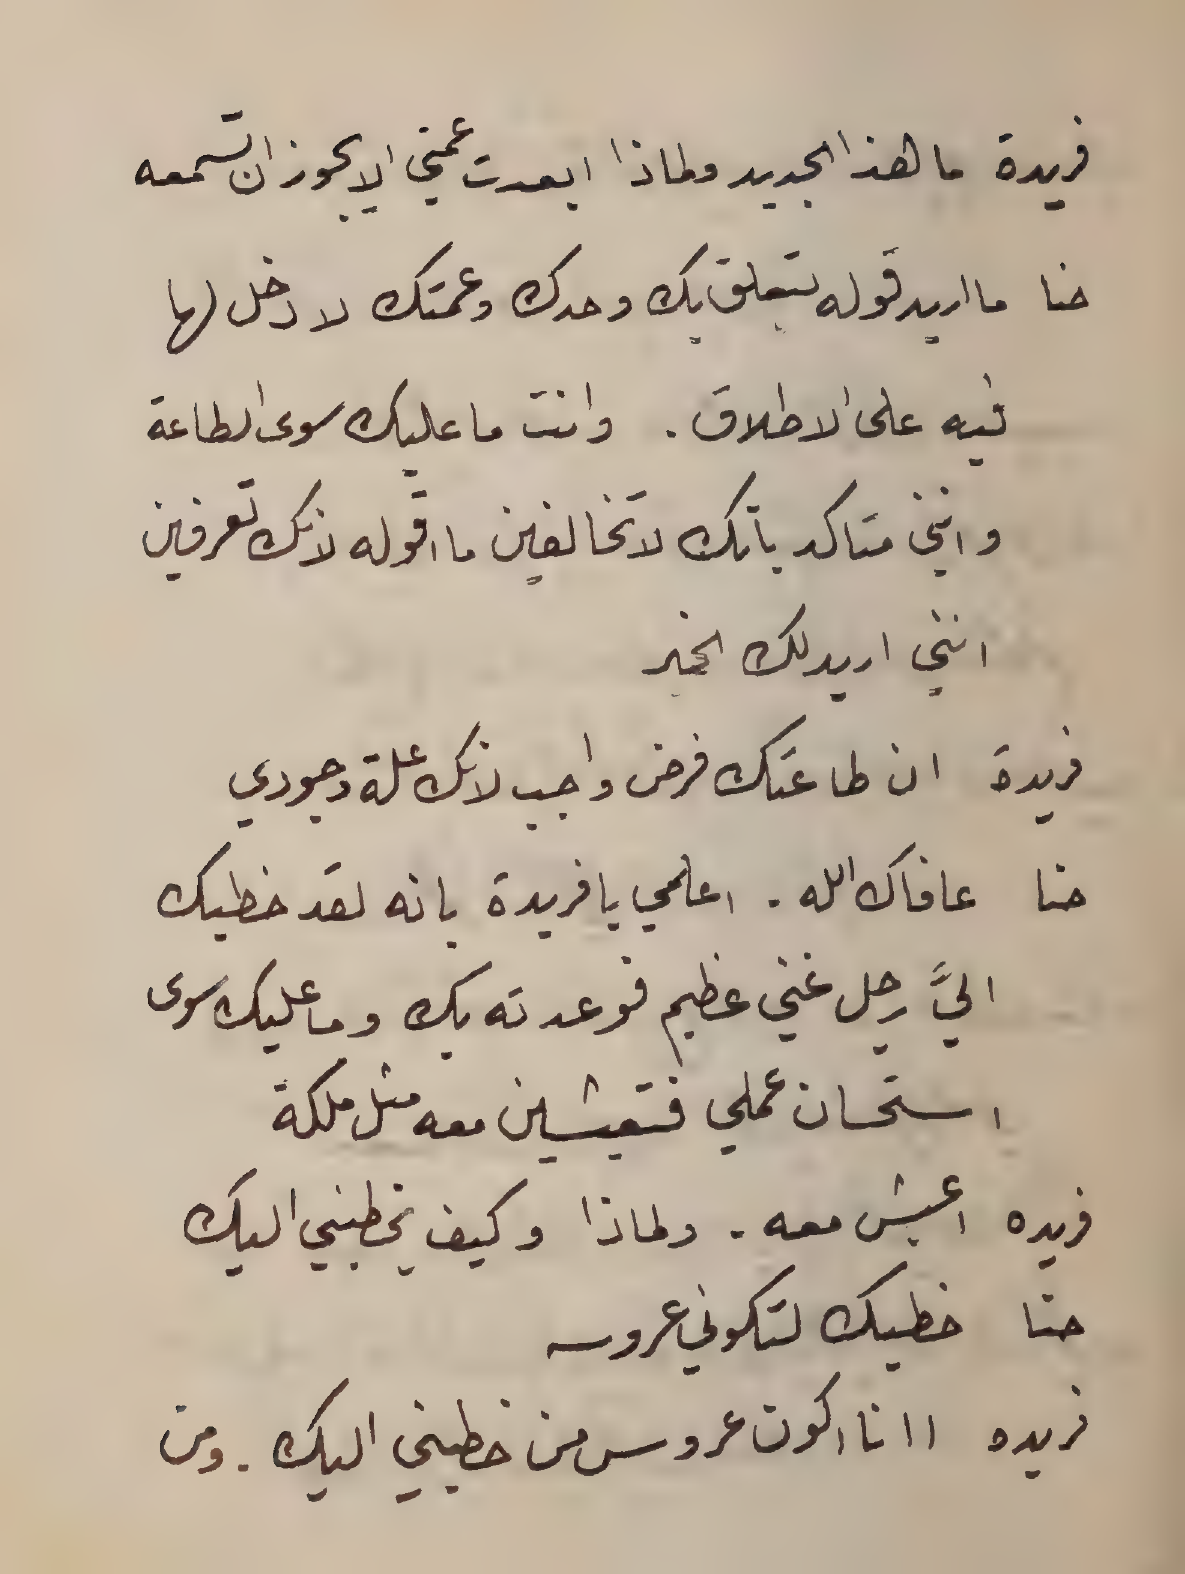 فريدة ما هذا الجديد ولماذا ابعدت عمتي الا يجوز ان تسمعه
حنا ما اريد قوله يتعلق بك وحدك وعمتك لا دخل لها
فيه على الاطلاق . وانت ما عليك سوى الطاعة
وانني متاكد بانك لا تخالفين ما اقوله لانك تعرفين
انني اريد لك الخير
فريدة ان طاعتك فرض واجب لانك علة وجودي
حنا عافاك الله . اعلمي يا فريدة بانه لقد خطبك
اليَّ رجل غني عظيم فوعدته بك وما عليك سوى
استحسان عملي فتعيشين معه مثل ملكة
فريده اعيش معه . ولماذا وكيف يخطبني اليك
حنا خطبك لتكوني عروسه
فريده اانا اكون عروس من خطبني اليك . ومن